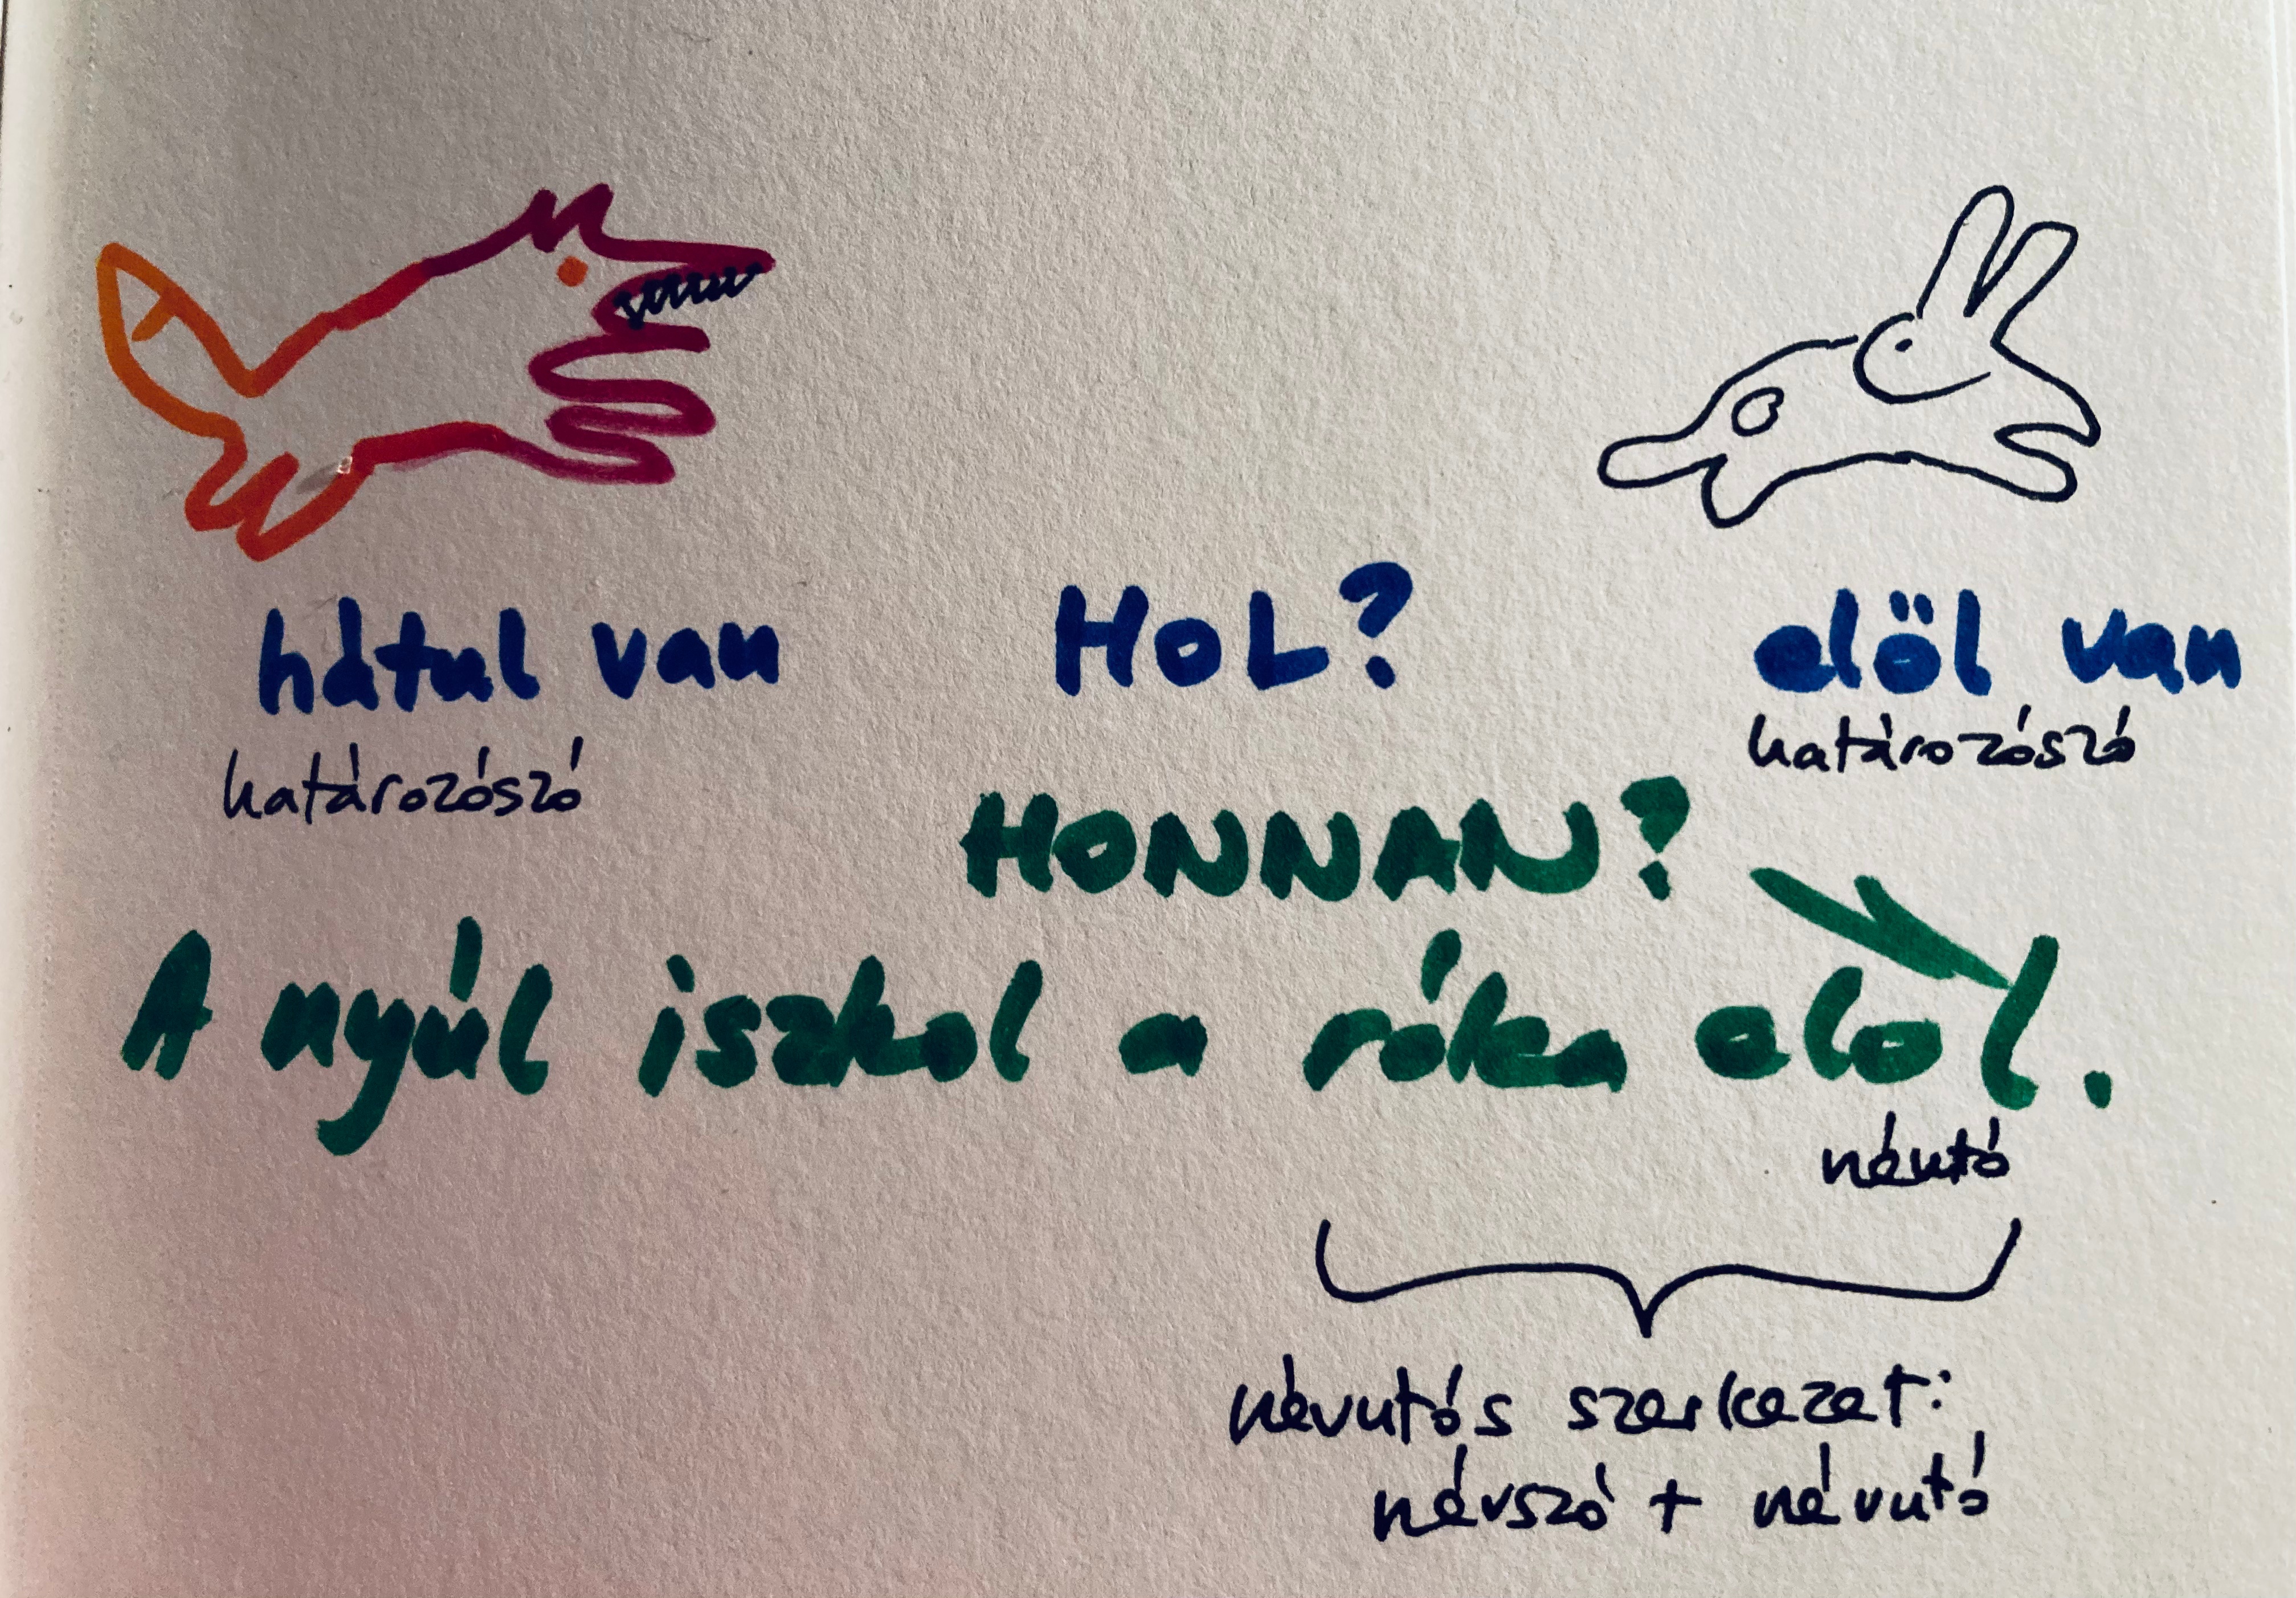 hátul van
HOL?
elöl van
határozószó
határozószó
HONNAN?
A nyúl iszkol a róka elol.
névutó
névutós szerkezet:
névszó + névutó